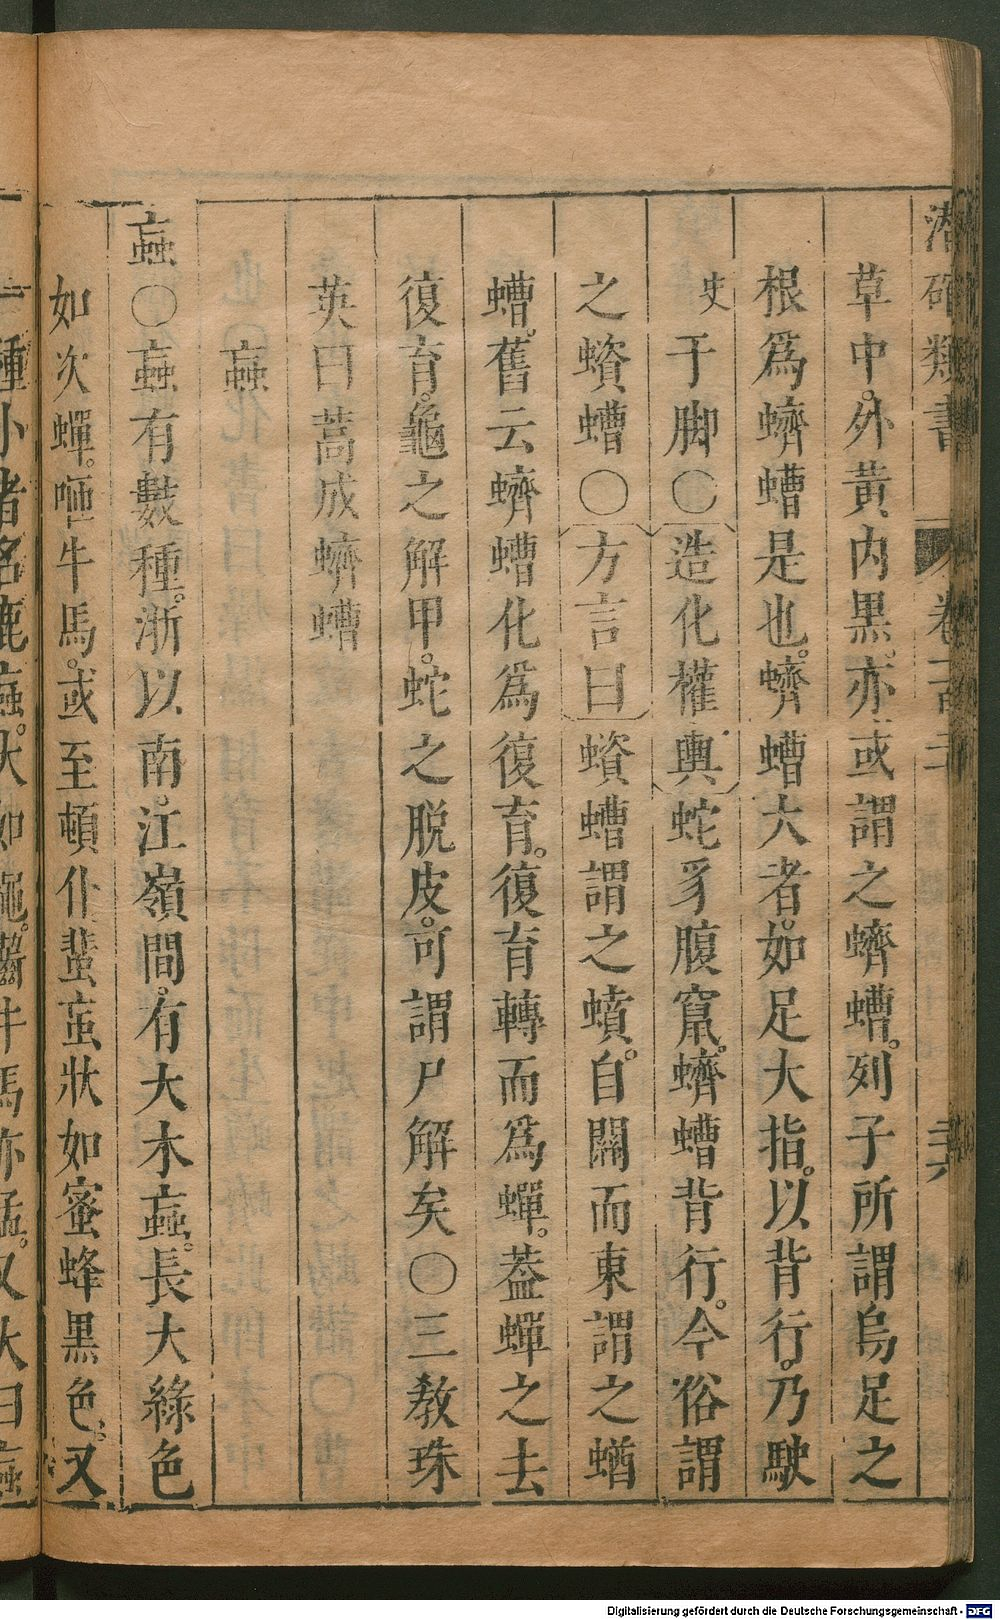 潛确類書 卷一百二十 兲
草中。外黃内黒。亦或謂之蠐螬。列子所謂烏足之
根爲蠐螬是也。蠐螬大者。如足大指。以背行。乃駛
于脚〇造化權輿蛇豸腹竄。蠐螬背行。今俗謂
之蠀螬〇方言曰蠀螬謂之蟦。自關而東謂之蝤
螬。舊云蠐螬化爲復育。復育轉而爲蟬。葢蟬之去
復育。龜之解甲。蛇之脱皮。可謂尸解矣〇三教珠
英曰蒿成蠐螬
蝱
蝱〇蝱有數種。淅以南。江嶺間。有大木蝱。長大綠色
如次蟬。咂牛馬。或至頓仆蜚䖟狀如蜜蜂黒色。又
一種小者名鹿蝱。大如蠅。齧牛馬亦猛。又大曰蝱
Digitalisierung gefördert durch die Deutsche Forschungsgemeinschaft - DFG